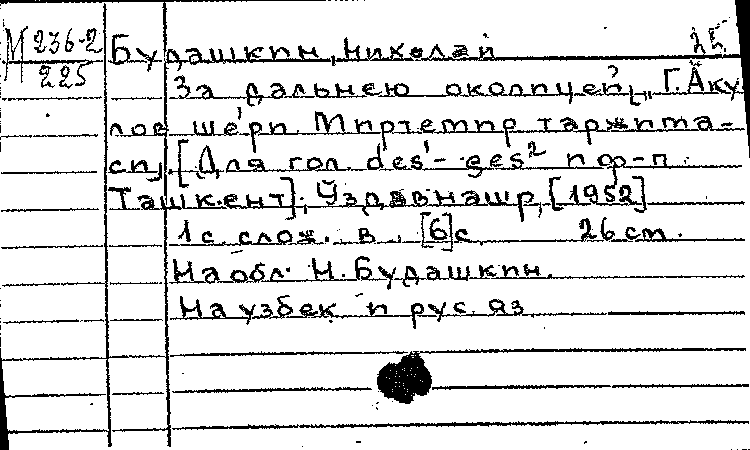 М 236-2 Будашкин, Николай 25
225
За дальнею околицей, Г. Аку
лов ше'ри. Миртемир таржима-
си. [Для гол. des¹- ges² и ф-п.
Ташкент], Ўздавнашр, [1952]
1 с. слож. в. [6] с. 26 cm.
На обл. Н. Будашкин.
На узбек и рус. яз.